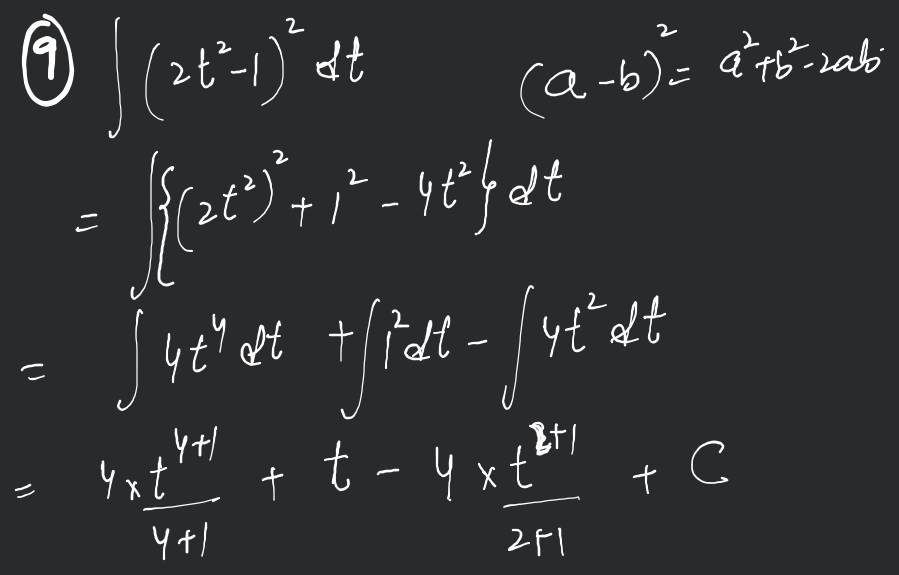 ⑨ ∫(2t²-1)² dt (a-b)² = a²+b²-2ab
= ∫{(2t²)² + 1² - 4t²} dt
= ∫4t⁴ dt + ∫1² dt - ∫4t² dt
= 4×t⁴⁺¹/4+1 + t - 4×t²⁺¹/2+1 + C